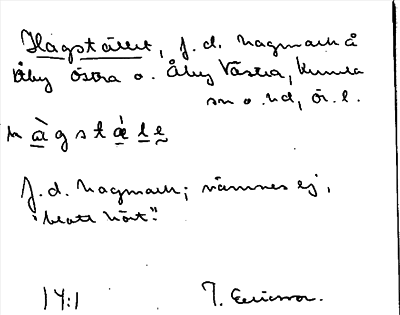 Hagstället, f. d. hagmark å
Åby Östra o. Åby Västra, Kumla
sn o. hd, ör. l.
hàgstǽle
f. d. hagmark; nämnes ej,
"blott hört".
14:1 T. Ericsson.